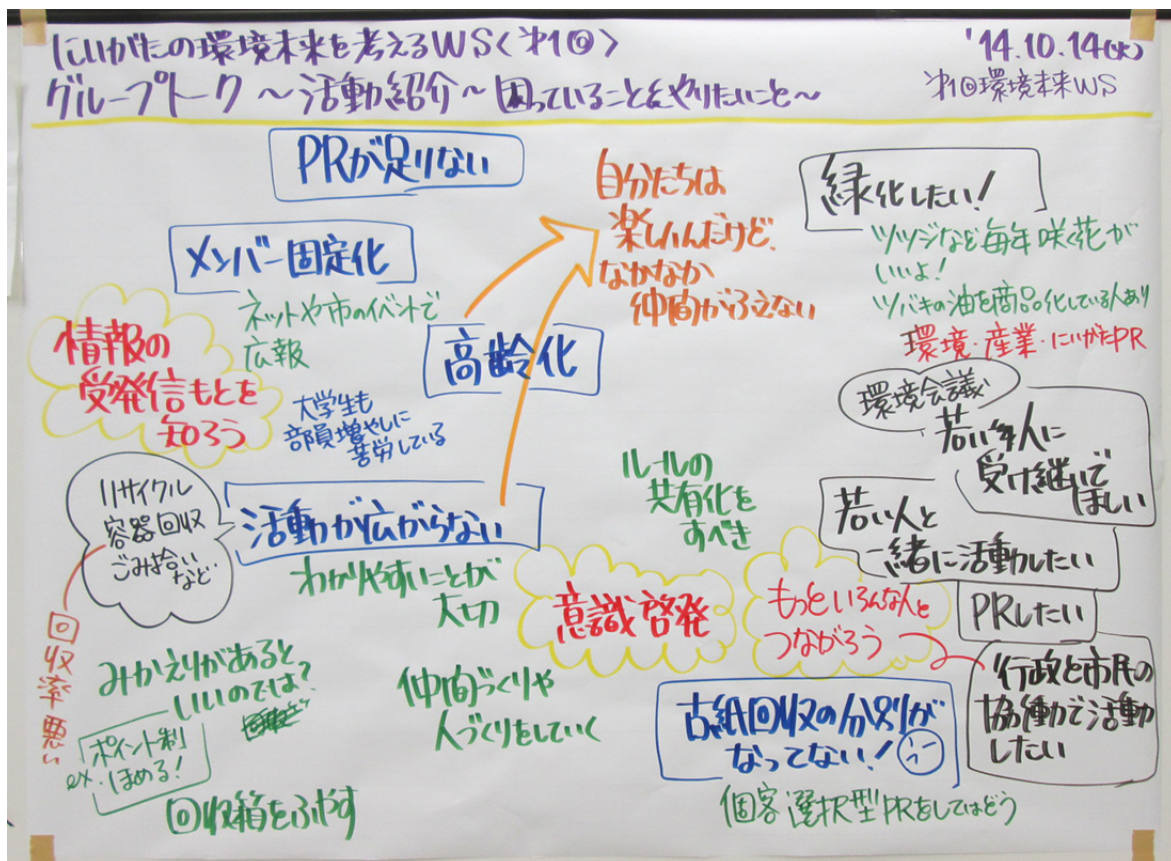 にいがたの環境未来を考えるWS〈第1回〉
'14.10.14(火)
グループトーク ～活動紹介～ 困っていることとやりたいこと～
第1回環境未来WS
PRが足りない
メンバー固定化
ネットや市のイベントで
広報
情報の
受発信もとを
知ろう
高齢化
大学生も
部員増やしに
苦労している
自分たちは
楽しいんだけど、
なかなか
仲間がふえない
緑化したい！
ツツジなど毎年咲く花が
いいよ！
ツバキの油を商品化している人あり
環境・産業・にいがたPR
環境会議
若い人に
受け継いで
ほしい
若い人と
一緒に活動したい
PRしたい
行政と市民の
協働で活動
したい
リサイクル
容器回収
ごみ拾い
など
回収率悪い
活動が広がらない
わかりやすいことが
大切
ルールの
共有化を
すべき
意識啓発
もっといろんな人と
つながろう
みかえりがあると
いいのでは？
ポイント制
ex. ほめる！
回収箱をふやす
仲間づくりや
人づくりをしていく
古紙回収の分別が
なってない！
個客選択型PRをしてはどう